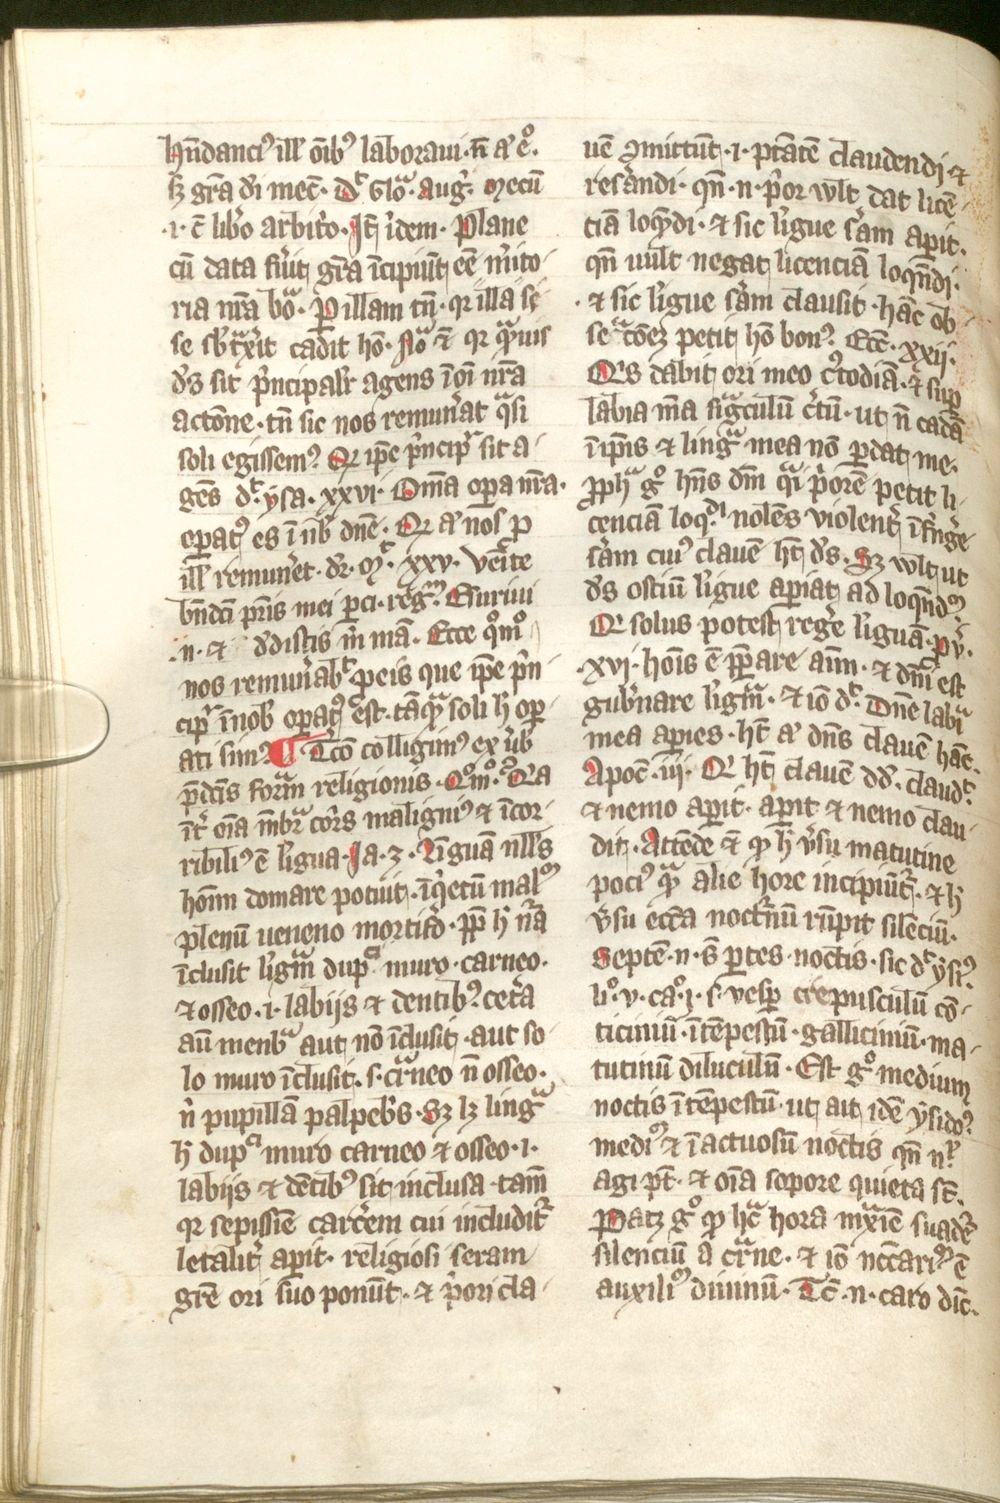 hñdanciꝰ illˀ oībꝰ laboraui · n̄ aͥ eͦ.
sꝫ gr̄a dˀi mec̄ · ıdͭ Gloͣ · augˀ. mecū
·i· c̄ libˀo arbitˀo · It̄ ıˀdem · Plane
cū data fuˀit gr̄a īcipiūt eē mˀito-
ria nr̄a bōa · Ꝑ illam tn̄ · qꝛ illa si
se sbˀtxˀit cadit hō · Nōa ē qꝛ qͣuis
dˀs sit pˀncipalˀr agens ī oī nr̄a
actōne · tn̄ sic nos remunˀat qͣsi
soli egissemꝰ Qꝛ ip̄e pˀncipͬ sit a-
gēs dͭ ysa · xxvi · Om̄a oꝑa nr̄a ·
oꝑatꝰ es ī nbˀ dn̄e · Qꝛ aͥ nos ꝓ
illˀ remunˀet · dr̄ · Mͭ · xxv · Venite
bn̄dc̄i pr̄is mei ꝑci · regͫ. Esuriui
·n· ⁊ dˀdistis mˀ mā · Ecce qͦmͦ
nos remunˀabͭ ꝓ eis que ip̄e pˀn
cipͬ ī nobˀ oꝑatꝰ est · tāqͣ soli h̄ oꝑ
ati simꝰ ¶ Tˀcō colligimꝰ ex ūbˀ
p̄dc̄is formͣ religionis · Qͦmͦ ꝰ Qia
īt̄ oīa mēbrͣ corˀs malignꝰ ⁊ īcor-
ribiliꝰ ē līgua · Ia · 3 · Līguā nllˀs
hōīm domare potuit · īqͥetū malͫ
plenū ueneno mortifˀo · Ꝓp̄ h̄ nr̄a
īclusit līgmͣ dupͨͥ muro · carneo ·
⁊ osseo · i · labijs ⁊ dentibꝰ cetˀa
aū menbͣ aut nō īclusit · aut so-
lo muro īclusit · s · cͣrneo n̄ osseo ·
nˀ pupillā palpebˀs · Sꝫ lꝫ lingͣ
h̄ dupͨͥ muro carneo ⁊ osseo · i ·
labijs ⁊ dētibꝰ sit inclusa · tam̄
qꝛ sepissīe carcˀem cui includitͬ
letalitˀ aꝑit · religiosi seram
grē ori suo ponūt · ⁊ pˀori cla-
uē ꝯmittūt · i · ptātē claudendi · ⁊
resˀandi · qn̄ · n · pˀor wlt dat licē-
tiā loqͤdi · ⁊ sic līgue sˀam aꝑit ·
qn̄ uult negat licenciā loqn̄di ·
· ⁊ sic līgue sˀam clausit · hāc ob
seͣtōeꝫ petit hō bonꝰ Ecc̄ · xxii ·
Qͥs dabit ori meo cˀtodiā · ⁊ suꝑ
labia m̄a sigͣculū cˀtū · ut n̄ cadā
ī ip̄is ⁊ lingͣ mea nō ꝑdat me ·
ꝓphͣ gͦ hn̄s dm̄ qͣi pˀorē petit li-
cenciā loqͥ nolēs violentˀ īfrˀgˀe
sˀam cuiꝰ clauē ht̄ dˀs · Sꝫ wlt ut
dˀs ostiū līgue aꝑiat ad loqn̄dͫ ·
Qꝛ solus potest regˀe līguā · pˀv ·
· xvi · hoīs ē p̄parare aīm · ⁊ dm̄i est
gubˀnare līgmͣ · ⁊ iō dͭ · Dn̄e labia
mea aꝑies · ht̄ aͥ dn̄s clauē hāc ·
Apoc̄ · iij · Qꝛ ht̄ clauē dd̄ · claudͭ
⁊ nemo aꝑit · aꝑit ⁊ nemo clau-
dit · Attēde ē qꝛ h̄ vˀsu matutine
pociꝰ qͣ alie hore incipiūtͬ · ⁊ h̄
vˀsu eccˀa noctˀnū rūpit silēciū ·
Septē · n · s̄ ꝑtes noctis · sic dͭ ysiꝰ
liͦ · v · caͦ · i · s · uesꝑ crepusculū cō-
ticiniū · ītēpestū · gallicinū · ma-
tutinū diluculū · Est gͦ medium
noctis ītēpestū · ut ait idē ysidoꝰ
mediͫ ⁊ īactuosū noctis qn̄ nͪ
agi pt̄ · ⁊ oīa sopore quieta st̄ ·
Patꝫ gͦ qꝛ hͨ hora mxīe suadꝫ
silenciū a cͣrne · ⁊ iō nccarͫ ē
auxiliͫ diuinū · Tc̄ · n · caro dīc ·